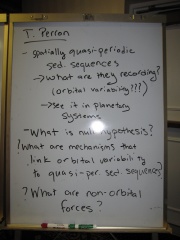 T. Perron
- spatially quasi-periodic
sed. sequences
→ what are they recording?
(orbital variability???)
→ see it in planetary
systems
- What is null hypothesis?
? What are mechanisms that
link orbital variability
to quasi-per. sed. sequences?
? What are non-orbital
forces?